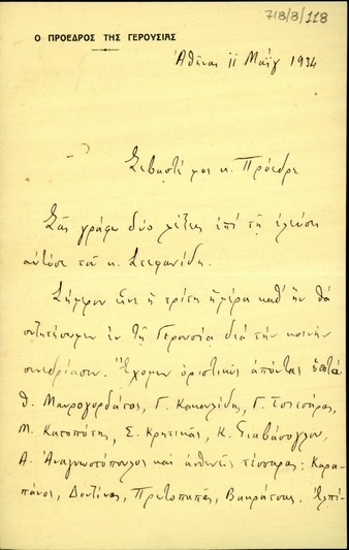 718/8/118
Ο ΠΡΟΕΔΡΟΣ ΤΗΣ ΓΕΡΟΥΣΙΑΣ
Ἀθῆναι 11 Μαΐου 1934
Σεβαστέ μοι κ. Πρόεδρε
Σᾶς γράφω δύο λέξεις ἐπὶ τῇ ἐλεύσει
αὐτόσε τοῦ κ. Στεφανίδη.
Σήμερον εἶνε ἡ τρίτη ἡμέρα καθ' ἣν θὰ
συζητήσωμεν ἐν τῇ Γερουσίᾳ διὰ τὴν κοινὴν
συνεδρίασιν. Ἔχομεν ὁριστικῶς ἀπόντας ἑπτά
Θ. Μαυρογορδάτος, Γ. Κακουλίδης, Γ. Τσιτσάρας,
Μ. Κατσπότης, Σ. Κρητικᾶς, Κ. Γιαβάσογλου,
Α. Ἀναγνωστόπουλος καὶ ἀσθενεῖς τέσσαρας: Καρα-
πάνος, Δοντίνας, Πρωτοπαπᾶς, Βακράτσας. Ἐλπί-